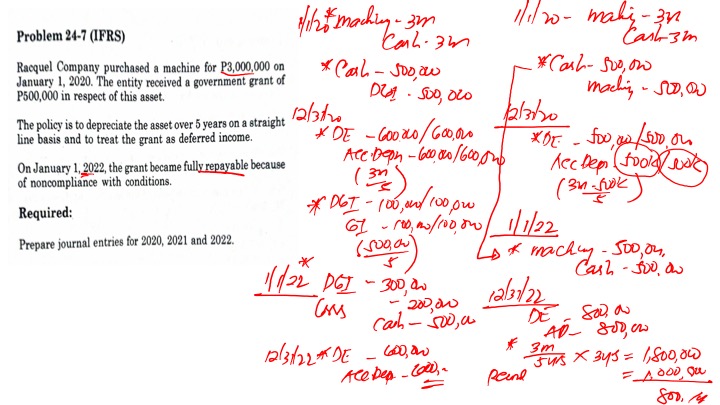 Problem 24-7 (IFRS)
Racquel Company purchased a machine for P3,000,000 on
January 1, 2020. The entity received a government grant of
P500,000 in respect of this asset.
The policy is to depreciate the asset over 5 years on a straight
line basis and to treat the grant as deferred income.
On January 1, 2022, the grant became fully repayable because
of noncompliance with conditions.
Required:
Prepare journal entries for 2020, 2021 and 2022.
1/1/20 * machinery - 3m
Cash - 3m
* Cash - 500,000
DGI - 500,000
12/31/20
* DE - 600,000/600,000
Acc Depn - 600,000/600,000
(3m
5)
* DGI - 100,000/100,000
GI - 100,000/100,000
(500,000
5)
1/1/22 * DGI - 300,000
Loss - 200,000
Cash - 500,000
12/31/22 * DE - 600,000
Acc Dep - 600,-
1/1/20 - - 3m
Cash 3m
* Cash - 500,000
- 500,000
12/31/20
* DE - 500,000/500,000
Acc Depn 500k 500k
(3m - 500k
5)
1/1/22
* machinery - 500,000
Cash - 500,000
12/31/22
DE - 800,000
AD - 800,000
* 3m
5yrs × 3yrs = 1,800,000
= 1,000,000
800,